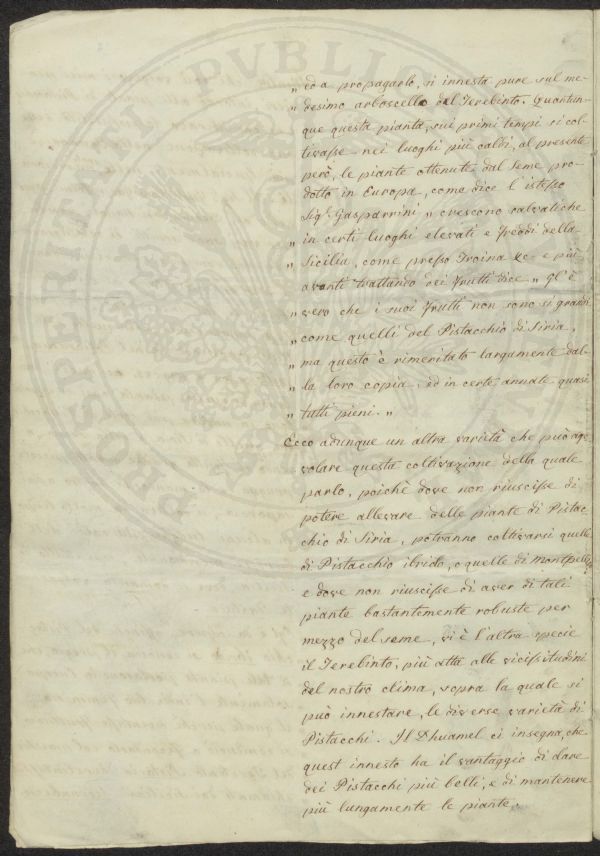 „ ed a propagarlo, si innesta pure sul me-
„ desimo arboscello del Terebinto. Quantun-
que questa pianta, sui primi tempi si col-
tivasse nei luoghi più caldi, al presente
però, le piante ottenute dal seme pro-
dotto in Europa, come dice l'istesso
Sigr. Gasparrini „ crescono salvatiche
„ in certi luoghi elevati e freddi della
„ Sicilia, come presso Troina &c e più
avanti trattando dei frutti dice „ Gl'è
„ vero che i suoi frutti non sono si grandi
„ come quelli del Pistacchio di Siria,
„ ma questo è rimeritato largamente dal-
„ la loro copia, ed in certe annate quasi
„ tutti pieni. „
Ecco adunque un altra varietà che può age-
volare questa coltivazione della quale
parlo, poichè dove non riuscisse di
potere allevare delle piante di Pistac-
chio di Siria, potranno coltivarsi quelle
di Pistacchio ibrido, o quelle di Montpellier
e dove non riuscisse di aver di tali
piante bastantemente robuste per
mezzo del seme, vi è l'altra specie
il Terebinto, più atta alle vicissitudini
del nostro clima, sopra la quale si
può innestare, le diverse varietà di
Pistacchi. Il Dhuamel ci insegna, che
quest innesto ha il vantaggio di dare
dei Pistacchi più belli, e di mantenere
più lungamente le piante.
PROSPERITATI PVBLICAE